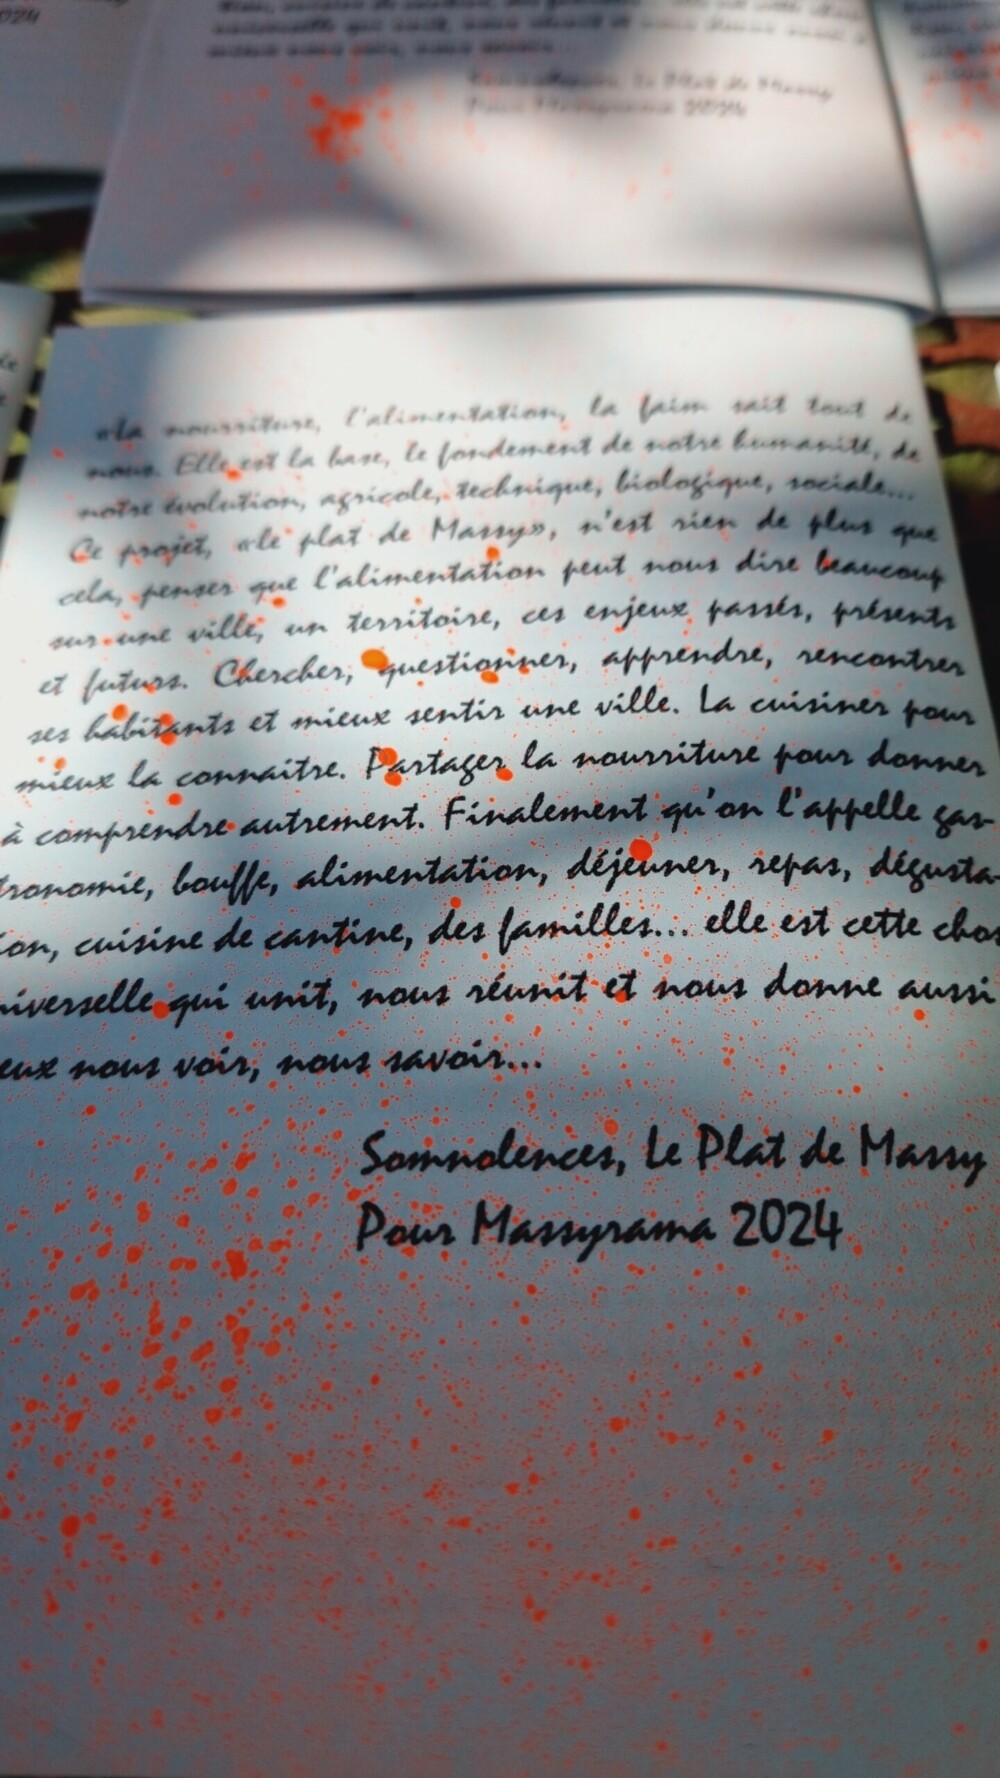 2024
Somnolences, Le Plat de Massy
Pour Massyrama 2024
«La nourriture, l'alimentation, la faim sait tout de
nous. Elle est la base, le fondement de notre humanité, de
notre évolution, agricole, technique, biologique, sociale...
Ce projet, «le plat de Massy», n'est rien de plus que
cela, penser que l'alimentation peut nous dire beaucoup
sur une ville, un territoire, ces enjeux passés, présents
et futurs. Chercher, questionner, apprendre, rencontrer
ses habitants et mieux sentir une ville. La cuisiner pour
mieux la connaitre. Partager la nourriture pour donner
à comprendre autrement. Finalement qu'on l'appelle gas-
tronomie, bouffe, alimentation, déjeuner, repas, dégusta-
ion, cuisine de cantine, des familles... elle est cette chos
niverselle qui unit, nous réunit et nous donne aussi
eux nous voir, nous savoir...
Somnolences, Le Plat de Massy
Pour Massyrama 2024